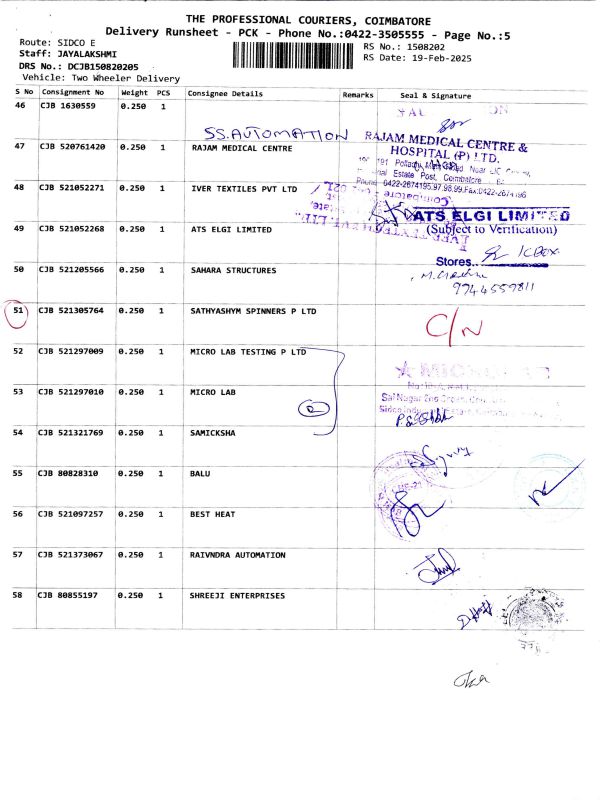 THE PROFESSIONAL COURIERS, COIMBATORE
Delivery Runsheet - PCK - Phone No.:0422-3505555 - Page No.:5
Route: SIDCO E
Staff: JAYALAKSHMI
DRS No.: DCJB150820205
Vehicle: Two Wheeler Delivery
RS No.: 1508202
RS Date: 19-Feb-2025
S No Consignment No Weight PCS Consignee Details Remarks Seal & Signature
46 CJB 1630559 0.250 1
SS.AUTOMATION
47 CJB 520761420 0.250 1 RAJAM MEDICAL CENTRE
RAJAM MEDICAL CENTRE &
HOSPITAL (P) LTD.
48 CJB 521052271 0.250 1 IVER TEXTILES PVT LTD
49 CJB 521052268 0.250 1 ATS ELGI LIMITED
ATS ELGI LIMITED
(Subject to Verification)
Stores
50 CJB 521205566 0.250 1 SAHARA STRUCTURES
9744559811
51 CJB 521305764 0.250 1 SATHYASHYM SPINNERS P LTD
C/N
52 CJB 521297009 0.250 1 MICRO LAB TESTING P LTD
53 CJB 521297010 0.250 1 MICRO LAB
54 CJB 521321769 0.250 1 SAMICKSHA
55 CJB 80828310 0.250 1 BALU
56 CJB 521097257 0.250 1 BEST HEAT
57 CJB 521373067 0.250 1 RAIVNDRA AUTOMATION
58 CJB 80855197 0.250 1 SHREEJI ENTERPRISES